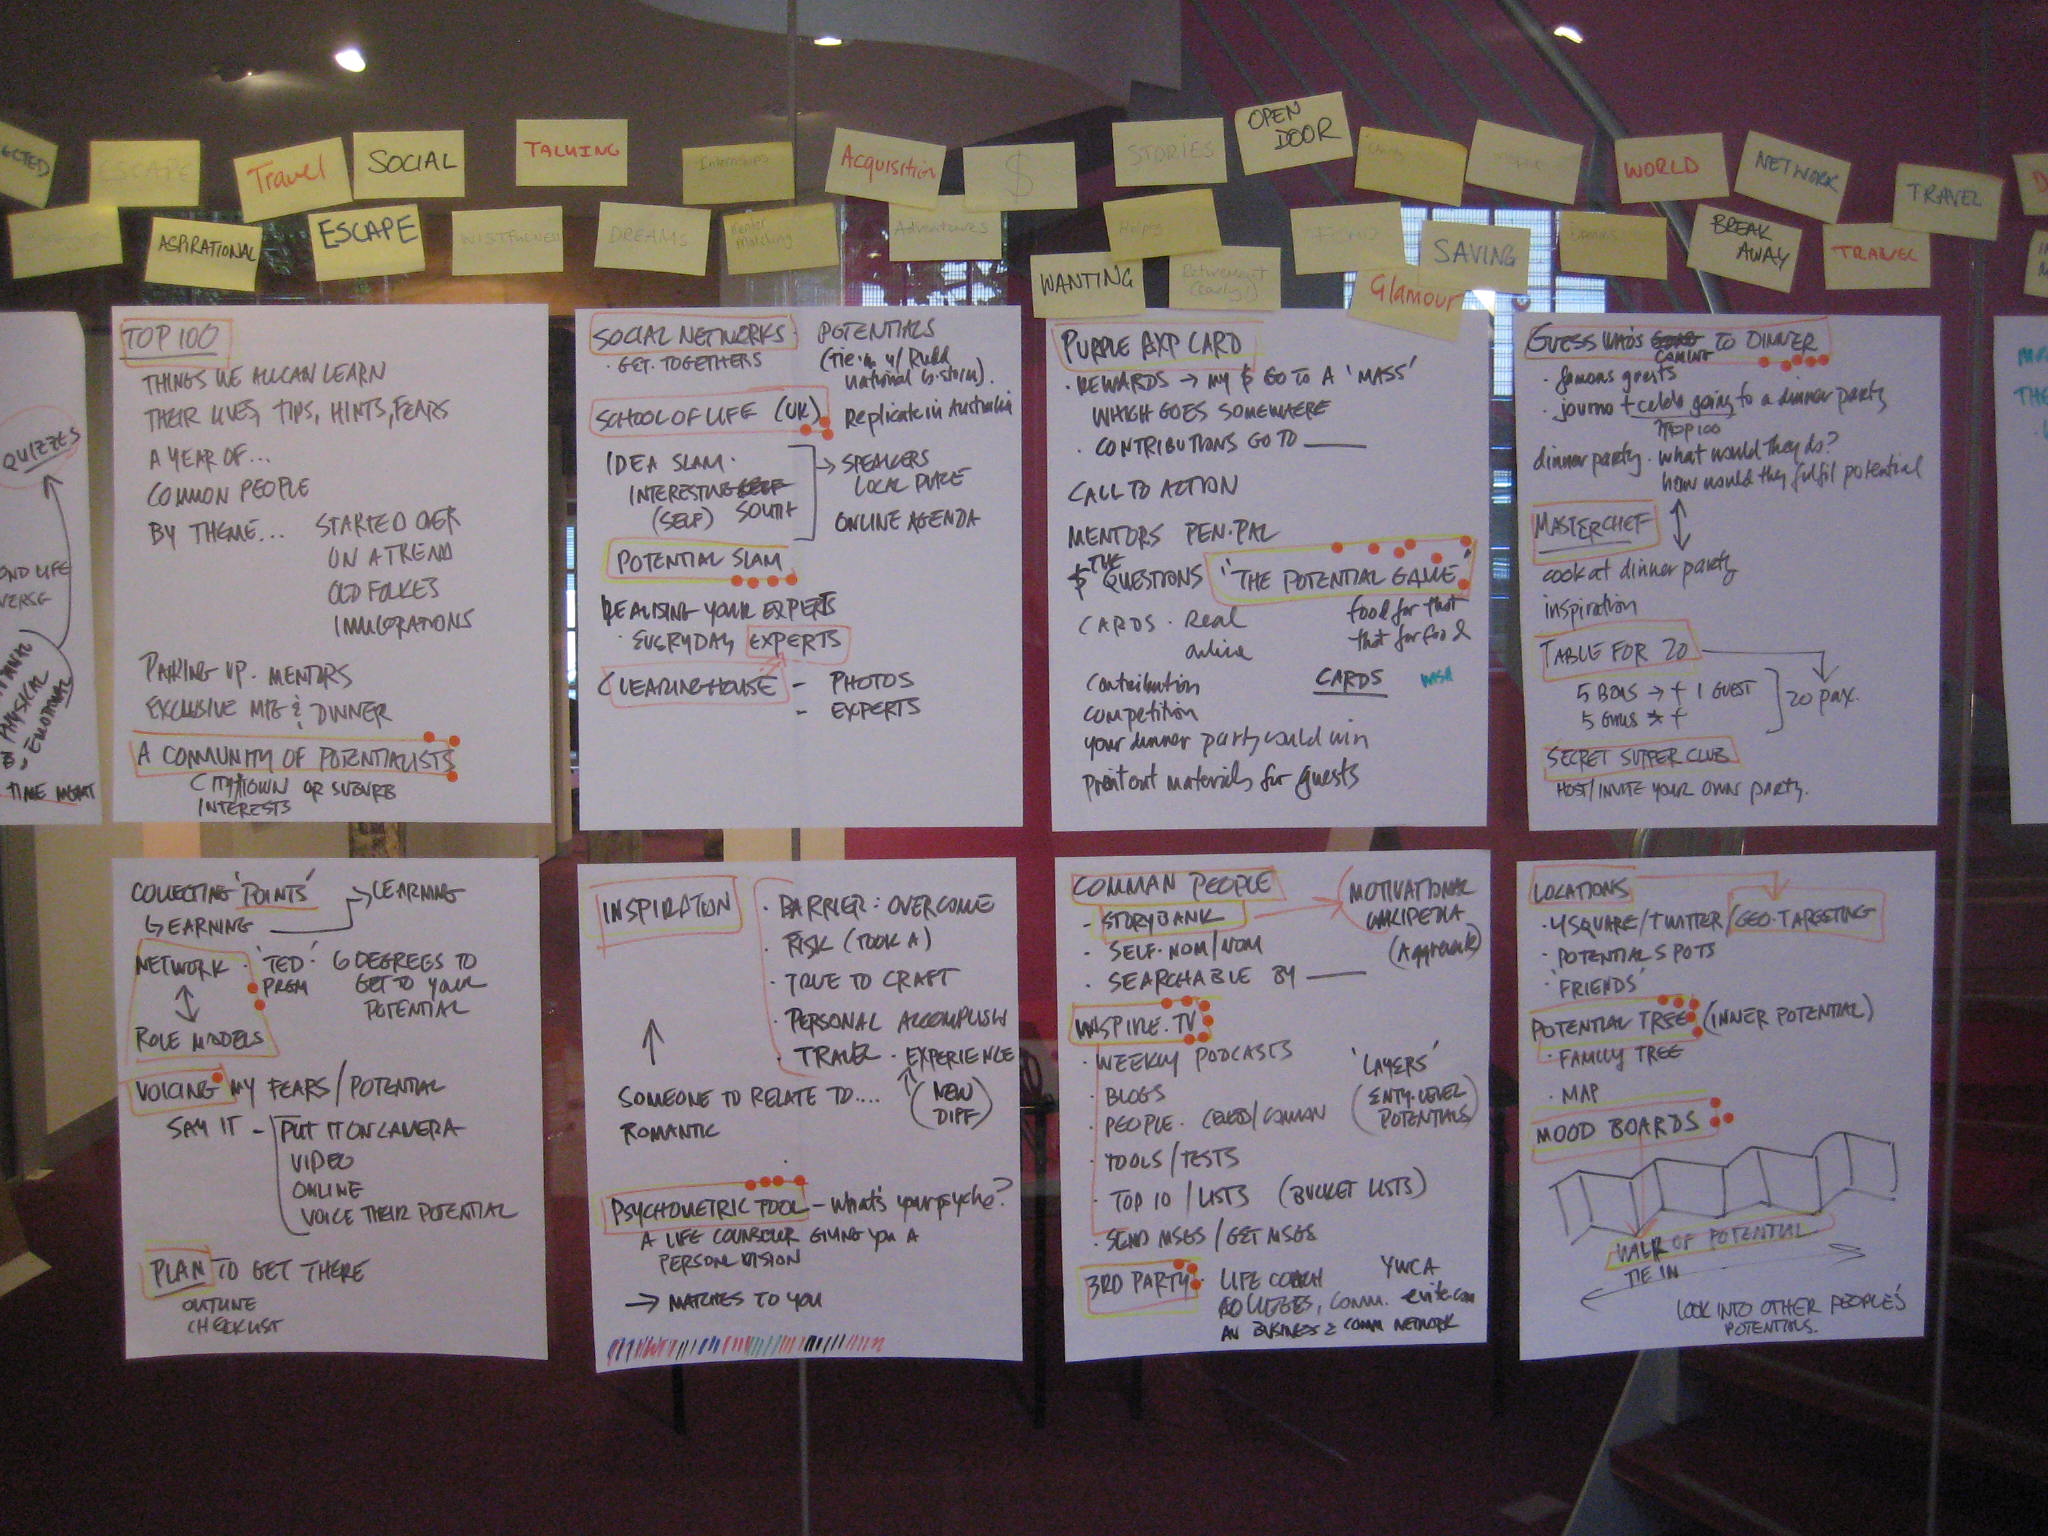 ESCAPE
Travel
SOCIAL
TALKING
Internships
Acquisition
$
STORIES
OPEN
DOOR
WORLD
NETWORK
TRAVEL
ASPIRATIONAL
ESCAPE
WISTFULNESS
DREAMS
Mentor
Matching
Adventures
Helping
SAVING
BREAK
AWAY
TRAVEL
WANTING
Retirement
(Early!)
Glamour
QUIZZES
PHYSICAL
EMOTIONAL
TIME MGMT
TOP 100
THINGS WE ALL CAN LEARN
THEIR LIVES, TIPS, HINTS, FEARS
A YEAR OF...
COMMON PEOPLE
BY THEME... STARTED OVER
ON A TREND
OLD FOLKES
IMMIGRATIONS
PAIRING UP. MENTORS
EXCLUSIVE MTG & DINNER
A COMMUNITY OF POTENTIALISTS
CITY/TOWN OR SUBURB
INTERESTS
SOCIAL NETWORKS · POTENTIALS
· GET-TOGETHERS (Tie-in w/ Rudd
national b.storm).
SCHOOL OF LIFE (UK) Replicate in Australia
IDEA SLAM · → SPEAKERS
INTERESTING LOCAL PLACE
(SELF) SOUTH ONLINE AGENDA
POTENTIAL SLAM
REALISING YOUR EXPERTS
· EVERYDAY EXPERTS
CLEARINGHOUSE - PHOTOS
- EXPERTS
PURPLE AXP CARD
· REWARDS → MY $ GO TO A 'MASS'
WHICH GOES SOMEWHERE
· CONTRIBUTIONS GO TO ____
CALL TO ACTION
MENTORS PEN-PAL
THE
QUESTIONS "THE POTENTIAL GAME"
CARDS · Real food for that
online that for food
Contribution CARDS
competition
your dinner party could win
print out materials for guests
GUESS WHO'S COMING TO DINNER
· famous guests
· journo + celeb going to a dinner party
TOP 100
dinner party · what would they do?
how would they fulfil potential
MASTERCHEF
cook at dinner party
inspiration
TABLE FOR 20
5 BOYS → + 1 GUEST
5 GIRLS → + 20 PAX.
SECRET SUPPER CLUB
HOST/INVITE YOUR OWN party.
COLLECTING 'POINTS' → LEARNING
↳ EARNING
NETWORK · 'TED' · 6 DEGREES TO
PRGM GET TO YOUR
POTENTIAL
ROLE MODELS
VOICING MY FEARS / POTENTIAL
SAY IT - PUT IT ON CAMERA
VIDEO
ONLINE
VOICE THEIR POTENTIAL
PLAN TO GET THERE
OUTLINE
CHECKLIST
INSPIRATION · BARRIER: OVERCOME
· RISK (TOOK A)
· TRUE TO CRAFT
· PERSONAL ACCOMPLISH
· TRAVEL · EXPERIENCE
SOMEONE TO RELATE TO.... (NEW
DIFF)
ROMANTIC
PSYCHOMETRIC TOOL - What's your psyche?
A LIFE COUNSELOR GIVING YOU A
PERSONAL VISION
→ MATCHES TO YOU
COMMAN PEOPLE MOTIVATIONAL
- STORYBANK WIKIPEDIA
· SELF-NOM/NOM (Aggregate)
· SEARCHABLE BY ____
INSPIRE.TV
· WEEKLY PODCASTS 'LAYERS'
· BLOGS (ENTY-LEVEL
· PEOPLE · CELEB/COMMAN POTENTIALS)
· TOOLS / TESTS
· TOP 10 / LISTS (BUCKET LISTS)
· SEND MSGS / GET MSGS
3RD PARTY · LIFE COACH YWCA
COLLEGES, COMM. evite.com
AN BUSINESS & COMM NETWORK
LOCATIONS
· 4SQUARE / TWITTER / GEO-TARGETING
· POTENTIAL SPOTS
· 'FRIENDS'
POTENTIAL TREE (INNER POTENTIAL)
· FAMILY TREE
· MAP
MOOD BOARDS
WALK OF POTENTIAL
TIE IN
LOOK INTO OTHER PEOPLE'S
POTENTIALS.